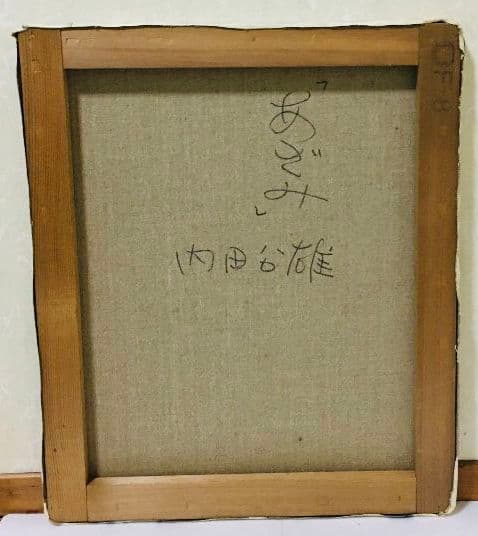 「あざみ」
内田公雄
F8